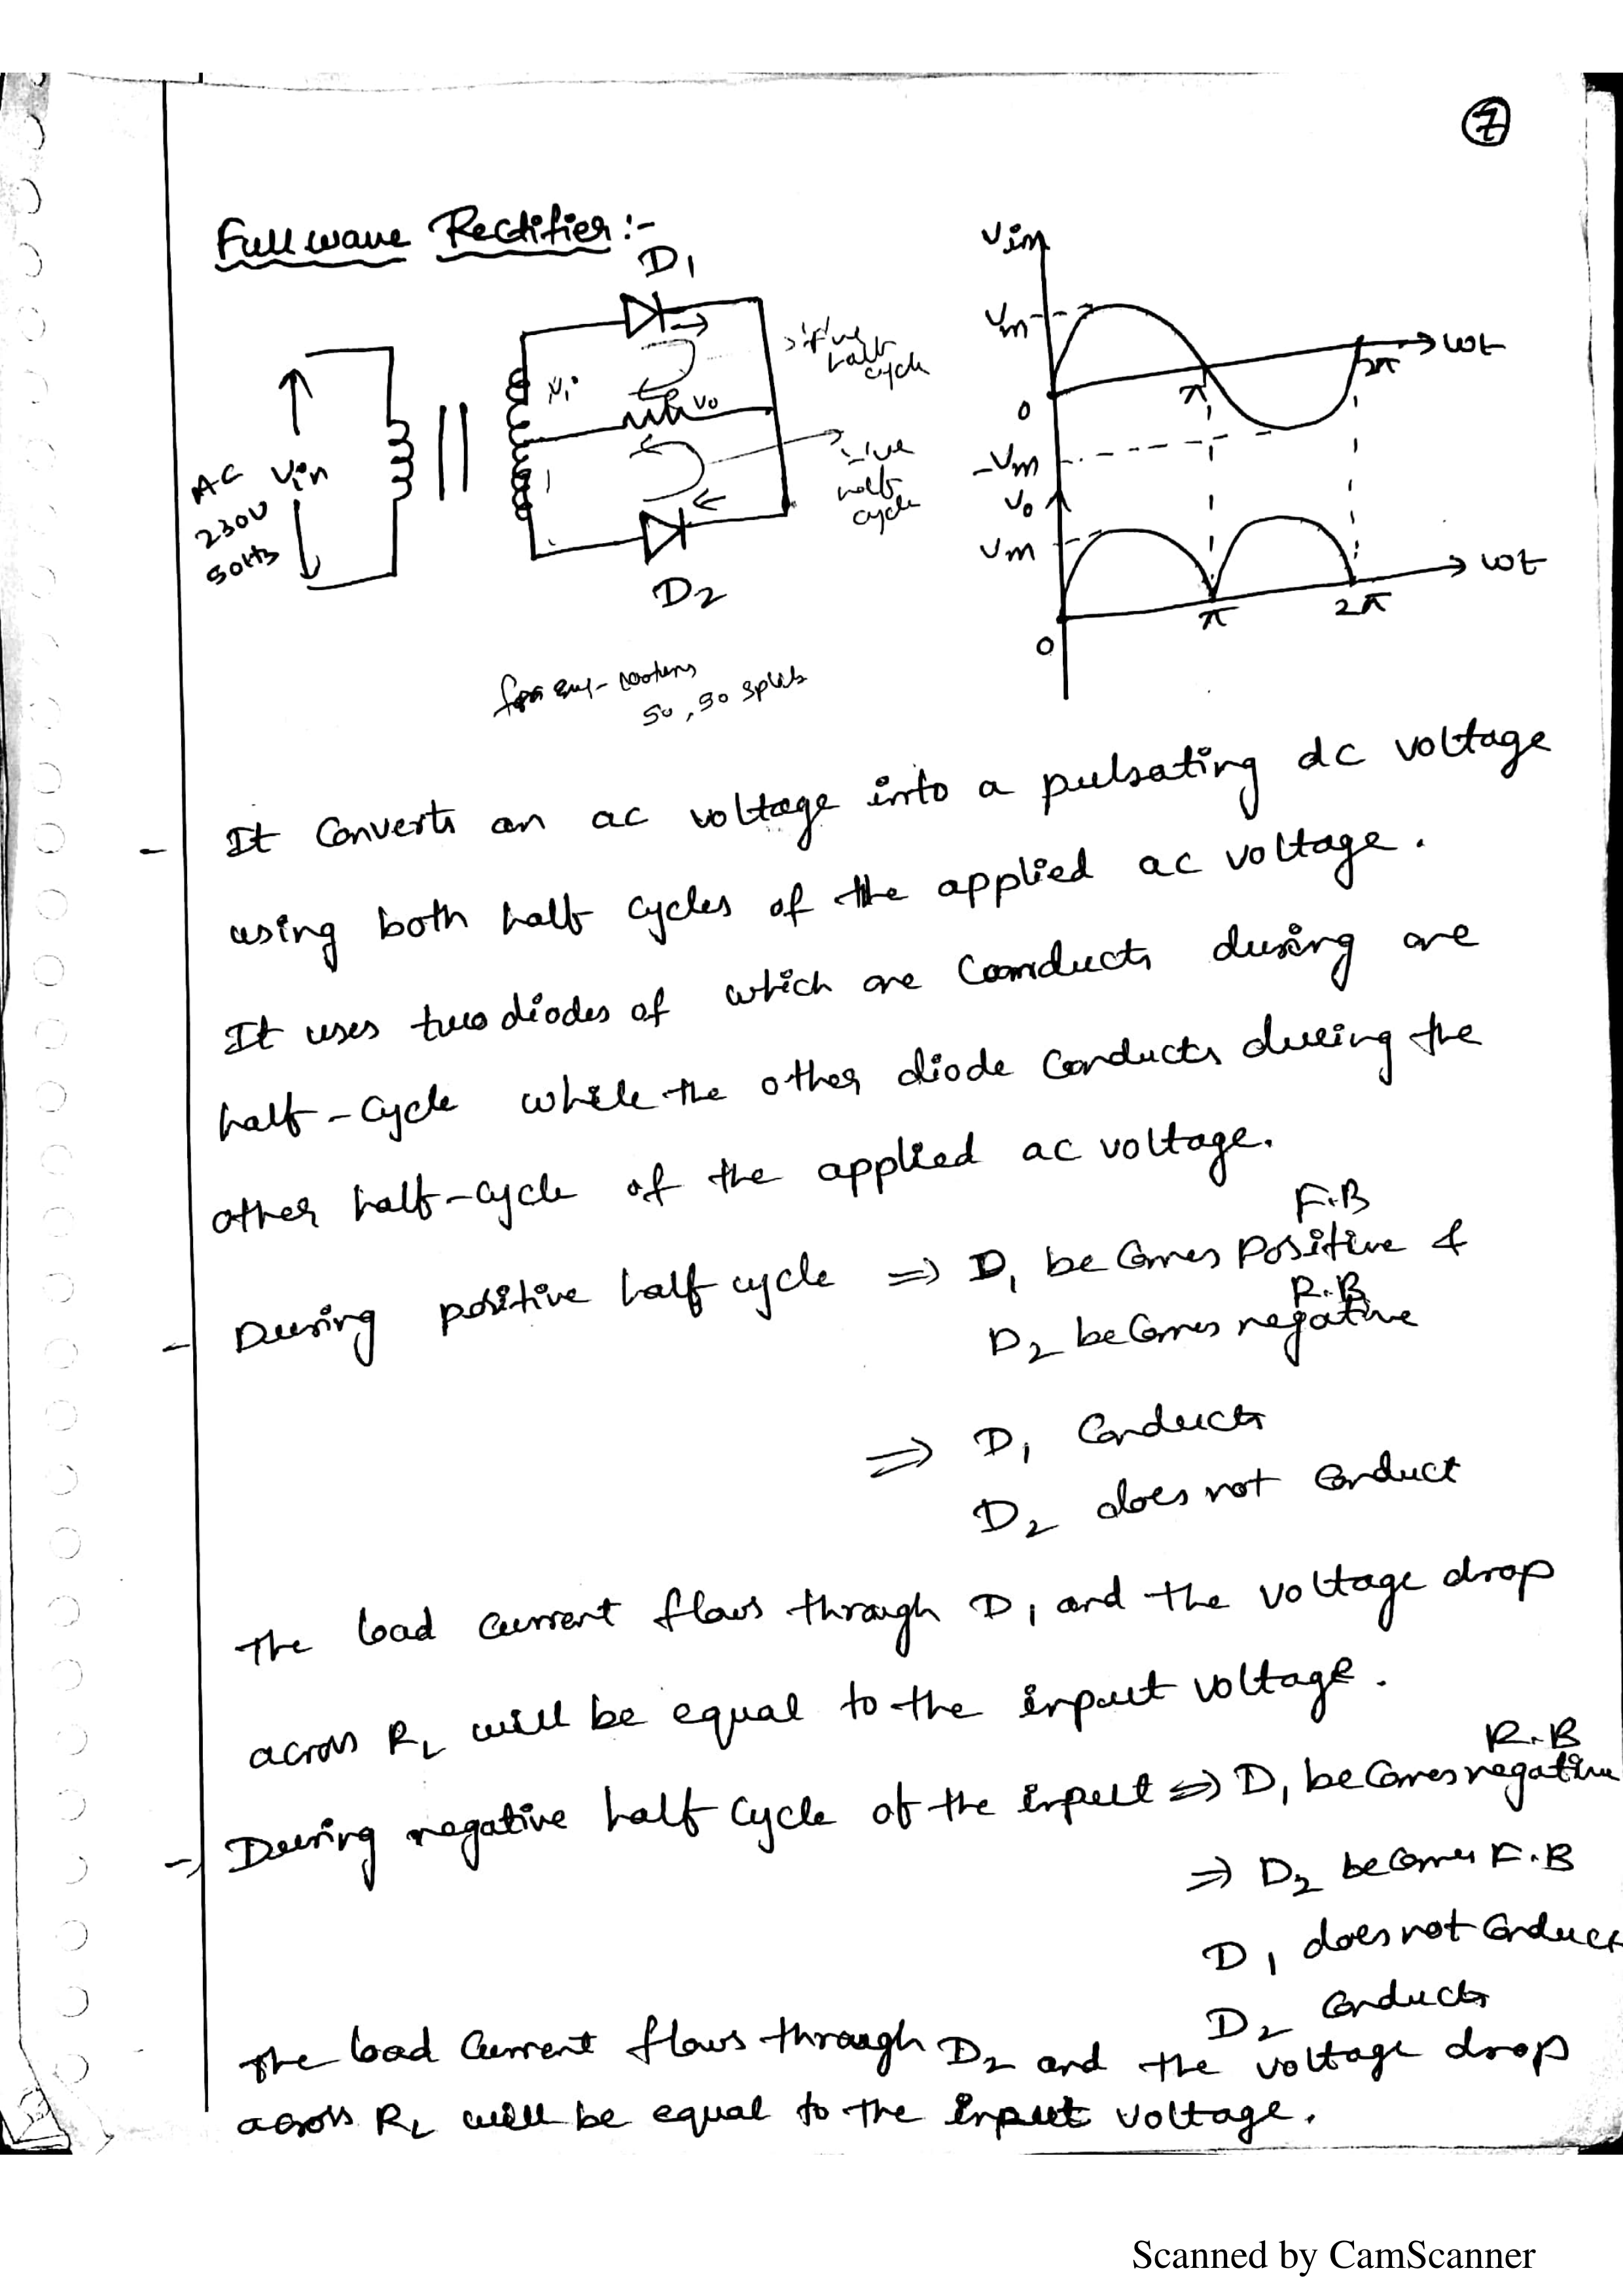 7
Full wave Rectifier :-
D1
D2
AC Vin
230V
50Hz
Vi
Vo
+ive
half
cycle
-ive
half
cycle
Vin
Vm
0
π
2π
ωt
-Vm
Vo
Vm
0
π
2π
ωt
50, 50 split
- It Converts an ac voltage into a pulsating dc voltage
using both half cycles of the applied ac voltage.
It uses two diodes of which one Conducts during one
half-cycle while the other diode Conducts during the
other half-cycle of the applied ac voltage.
F.B
- During positive half cycle ⇒ D1 becomes positive &
R.B
D2 becomes negative
⇒ D1 Conducts
D2 does not Conduct
The load current flows through D1 and the voltage drop
across RL will be equal to the input voltage.
R.B
- During negative half cycle of the input ⇒ D1 becomes negative
⇒ D2 becomes F.B
D1 does not Conduct
D2 Conducts
The load Current flows through D2 and the voltage drop
across RL will be equal to the input voltage.
Scanned by CamScanner